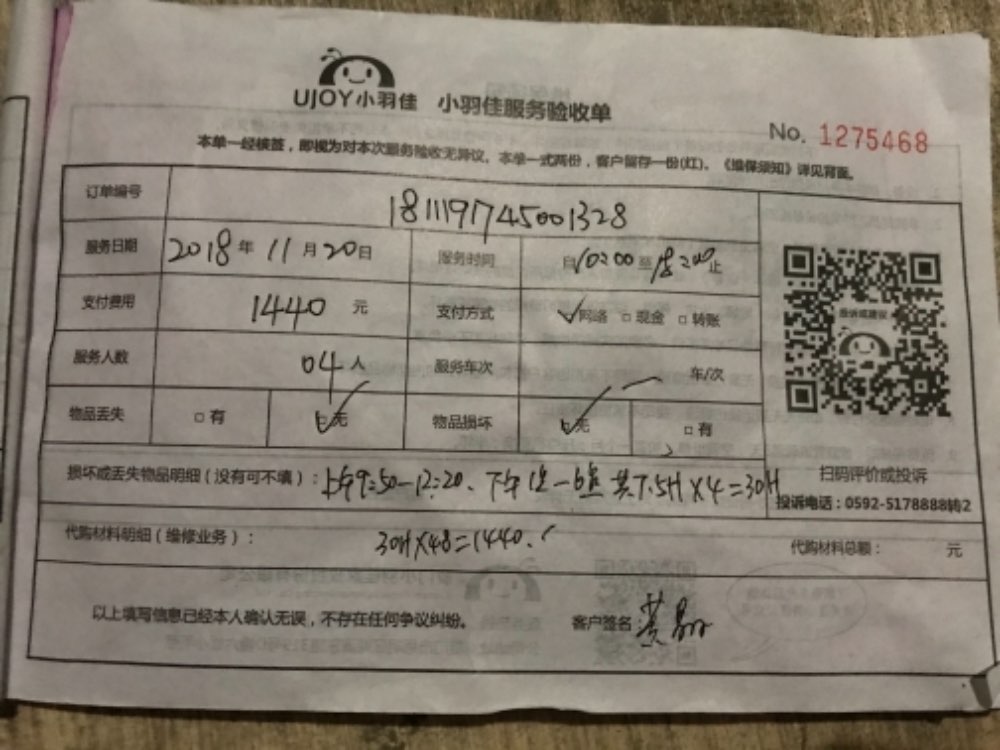 UJOY小羽佳 小羽佳服务验收单
No. 1275468
本单一经核签，即视为对本次服务验收无异议。本单一式两份，客户留存一份(红)。《维保须知》详见背面。
订单编号 181119745001328
服务日期 2018年 11月20日 服务时间 自10:00至18:00止
支付费用 1440 元 支付方式 ☑网络 □现金 □转账
投诉或建议
服务人数 04人 服务车次 车/次
物品丢失 □有 ☑无 物品损坏 ☑无 □有
扫码评价或投诉
损坏或丢失物品明细（没有可不填）：上午9:50-12:20、下午1点-6点 共7.5H×4=30H
投诉电话：0592-5178888转2
代购材料明细（维修业务）： 30H×48=1440. 代购材料总额： 元
以上填写信息已经本人确认无误，不存在任何争议纠纷。 客户签名：